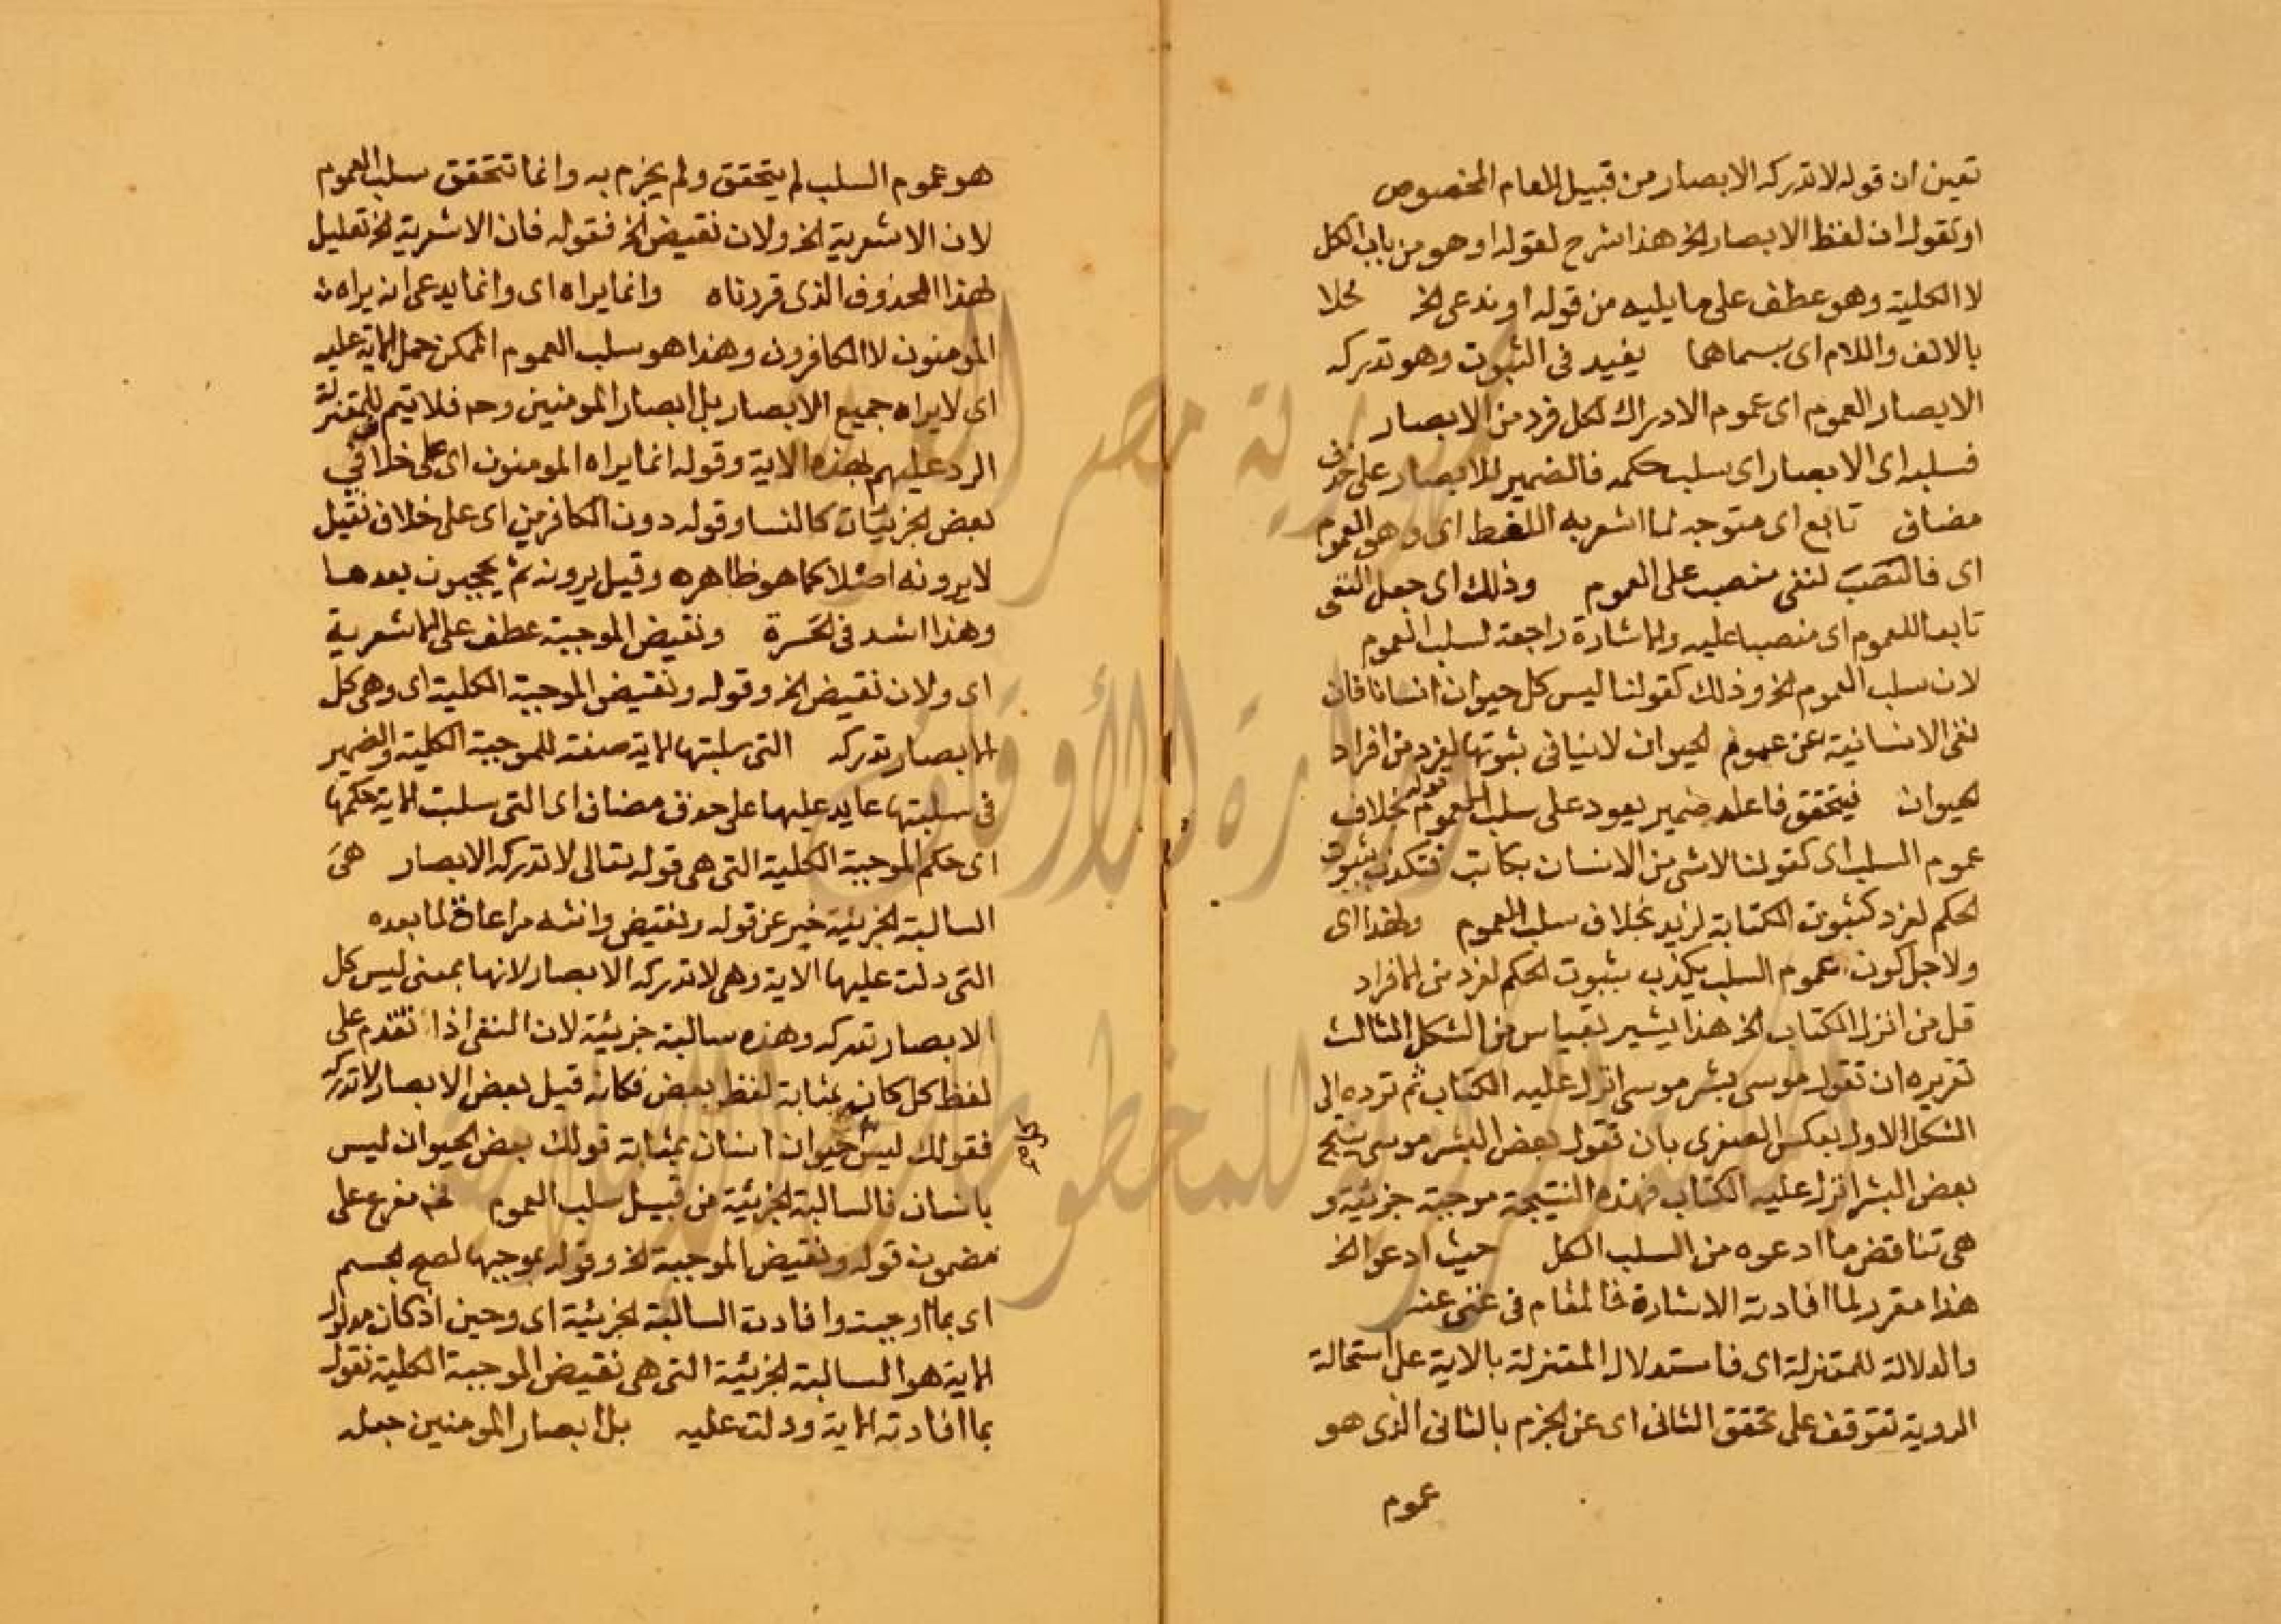 تعين ان قوله لا تدركه الابصار من قبيل العام المخصوص
او تقول ان لفظ الابصار الخ هذا شرح لقوله او هو من باب الكل
لا الكلية وهو عطف على ما يليه من قوله او ندعى الخ محلا
بالالف واللام اى بمسماهما يفيد فى الثبوت وهو تدركه
الابصار العموم اى عموم الادراك لكل فرد من الابصار
فسلبه اى الابصار اى سلب حكمه فالضمير للابصار على حذف
مضاف تابع اى متوجه لما اشعر به اللفظ اى وهو العموم
اى فالنصب لنفى منصب على العموم وذلك اى جعل النفى
تابعا للعموم اى منصبا عليه والاشارة راجعة لسلب العموم
لان سلب العموم الخ وذلك كقولنا ليس كل حيوان انسانا فان
نفى الانسانية عن عموم الحيوان لا ينافى ثبوتها لفرد من افراد
الحيوان فيتحقق فاعله ضمير يعود على سلب العموم قوله بخلاف
عموم السلب اى كقولنا لا شى من الانسان بكاتب فتكذب بثبوت
الحكم لفرد كثبوت الكتابة لزيد بخلاف سلب العموم ولهذا اى
ولاجل كون عموم السلب يكذب بثبوت الحكم لفرد من الافراد
قل من انزل الكتاب الخ هذا يشير لقياس من الشكل الثالث
تقريره ان تقول موسى بشر موسى انزل عليه الكتاب ثم ترده الى
الشكل الاول بعكس الصغرى بان تقول بعض البشر موسى ينتج
بعض البشر انزل عليه الكتاب فهذه النتيجة موجبة جزئية و
هى تناقض ما ادعوه من السلب الكل حيث ادعوا الخ
هذا مقرر لما افادته الاشارة فالمقام فى غنى عنه
والدلالة للمعتزلة اى فاستدلال المعتزلة بالاية على استحالة
الروية تتوقف على تحقق الثانى اى عن الجزم بالثانى الذى هو
عموم
هو عموم السلب لم يتحقق ولم يجزم به وانما تتحقق سلب العموم
لان الاشعرية الخ ولان نقيض الخ فقوله فان الاشعرية الخ تعليل
لهذا المحذوف الذى قررناه وانما يراه اى وانما يدعى انه يراه
المومنون لا الكافرون وهذا هو سلب العموم الممكن حمل الاية عليه
اى لا يراه جميع الابصار بل ابصار المومنين وح فلا يتم للمعتزلة
الرد عليهم بهذه الاية وقوله انما يراه المومنون اى على خلاف فى
بعض الجزئيات كالنسا وقوله دون الكافرين اى على خلاف فقيل
لا يرونه اصلا كما هو ظاهره وقيل يرونه ثم يحجبون بعدها
وهذا اشد فى الحسرة ونقيض الموجبة عطف على الاشعرية
اى ولان نقيض الخ وقوله ونقيض الموجبة الكلية اى وهى كل
الابصار تدركه التى سلبتها الاية صفة للموجبة الكلية والضمير
فى سلبتها عايد عليها على حذف مضاف اى التى سلبت الاية حكمها
اى حكم الموجبة الكلية التى هى قوله تعالى لا تدركه الابصار هى
السالبة الجزئية خبر عن قوله ونقيض وانثه مراعاة لما بعده
التى دلت عليها الاية وهى لا تدركه الابصار لانها بمعنى ليس كل
الابصار تدركه وهذه سالبة جزيئة لان النفى اذا تقدم على
لفظ كل كان بمثابة لفظ بعض فكانه قيل بعض الابصار لا تدركه
فقولك ليس حيوان انسان بمثابة قولك بعض الحيوان ليس
بانسان فالسالبة الجزئية من قبيل سلب العموم نحن مفرع على
مضمون قوله ونقيض الموجبة الخ وقوله بموجبها لصح الجسم
اى بما اوجبت وافادت السالبة الجزئية اى وحين اذ كان مدلول
الاية هو السالبة الجزئية التى هى نقيض الموجبة الكلية نقول
بما افادته الاية ودلت عليه بل ابصار المومنين جعله